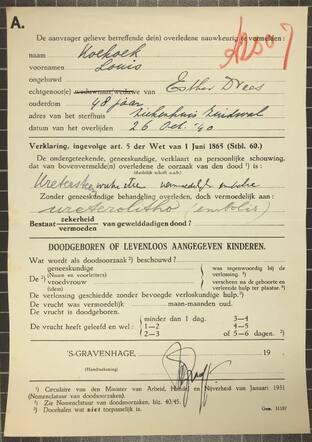 A.
De aanvrager gelieve betreffende de(n) overledene nauwkeurig te vermelden:
A2507
naam Koekoek
voornamen Louis
ongehuwd
echtgenoot(e) weduwnaar/weduwe van Esther Drees
ouderdom 48 jaar
adres van het sterfhuis Ziekenhuis Zuidwal
datum van het overlijden 26 Oct. '40
Verklaring, ingevolge art. 5 der Wet van 1 Juni 1865 (Stbl. 60.)
De ondergeteekende, geneeskundige, verklaart na persoonlijke schouwing,
dat van bovenvermelde(n) overledene de oorzaak van den dood ¹) is:
(duidelijk schrift a.u.b.)
Zonder geneeskundige behandeling overleden, doch vermoedelijk aan:
ureterolitho (embolis)
Bestaat zekerheid
vermoeden van gewelddadigen dood?
DOODGEBOREN OF LEVENLOOS AANGEGEVEN KINDEREN.
Wat wordt als doodsoorzaak ²) beschouwd?
De ³) geneeskundige
(Naam en voorletters)
vroedvrouw
(idem en idem)
was tegenwoordig bij de
verlossing.
verscheen na de geboorte en
verleende hulp ter plaatse. ³)
De verlossing geschiedde zonder bevoegde verloskundige hulp. ³)
De vermoedelijke duur was maan-maanden oud.
De vrucht is doodgeboren.
De vrucht heeft geleefd en wel:
minder dan 1 dag. 3—4
1—2 4—5
2—3 of 5—6 dagen. ³)
'S-GRAVENHAGE, 19
(Handteekening)
¹) Circulaire van den Minister van Arbeid, Handel en Nijverheid van Januari 1931
(Nomenclatuur van doodsoorzaken).
²) Zie Nomenclatuur van doodsoorzaken, blz. 40/45.
³) Doorhalen wat niet toepasselijk is.
Gem. 31187